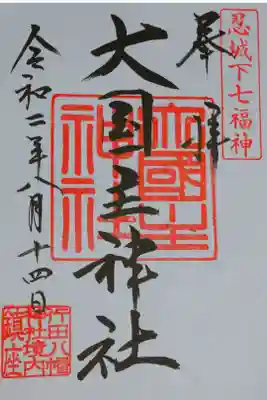 忍城下七福神
奉拝
大国主神社
大國主神社
令和二年八月十四日
行田八幡
神社境内
鎮座